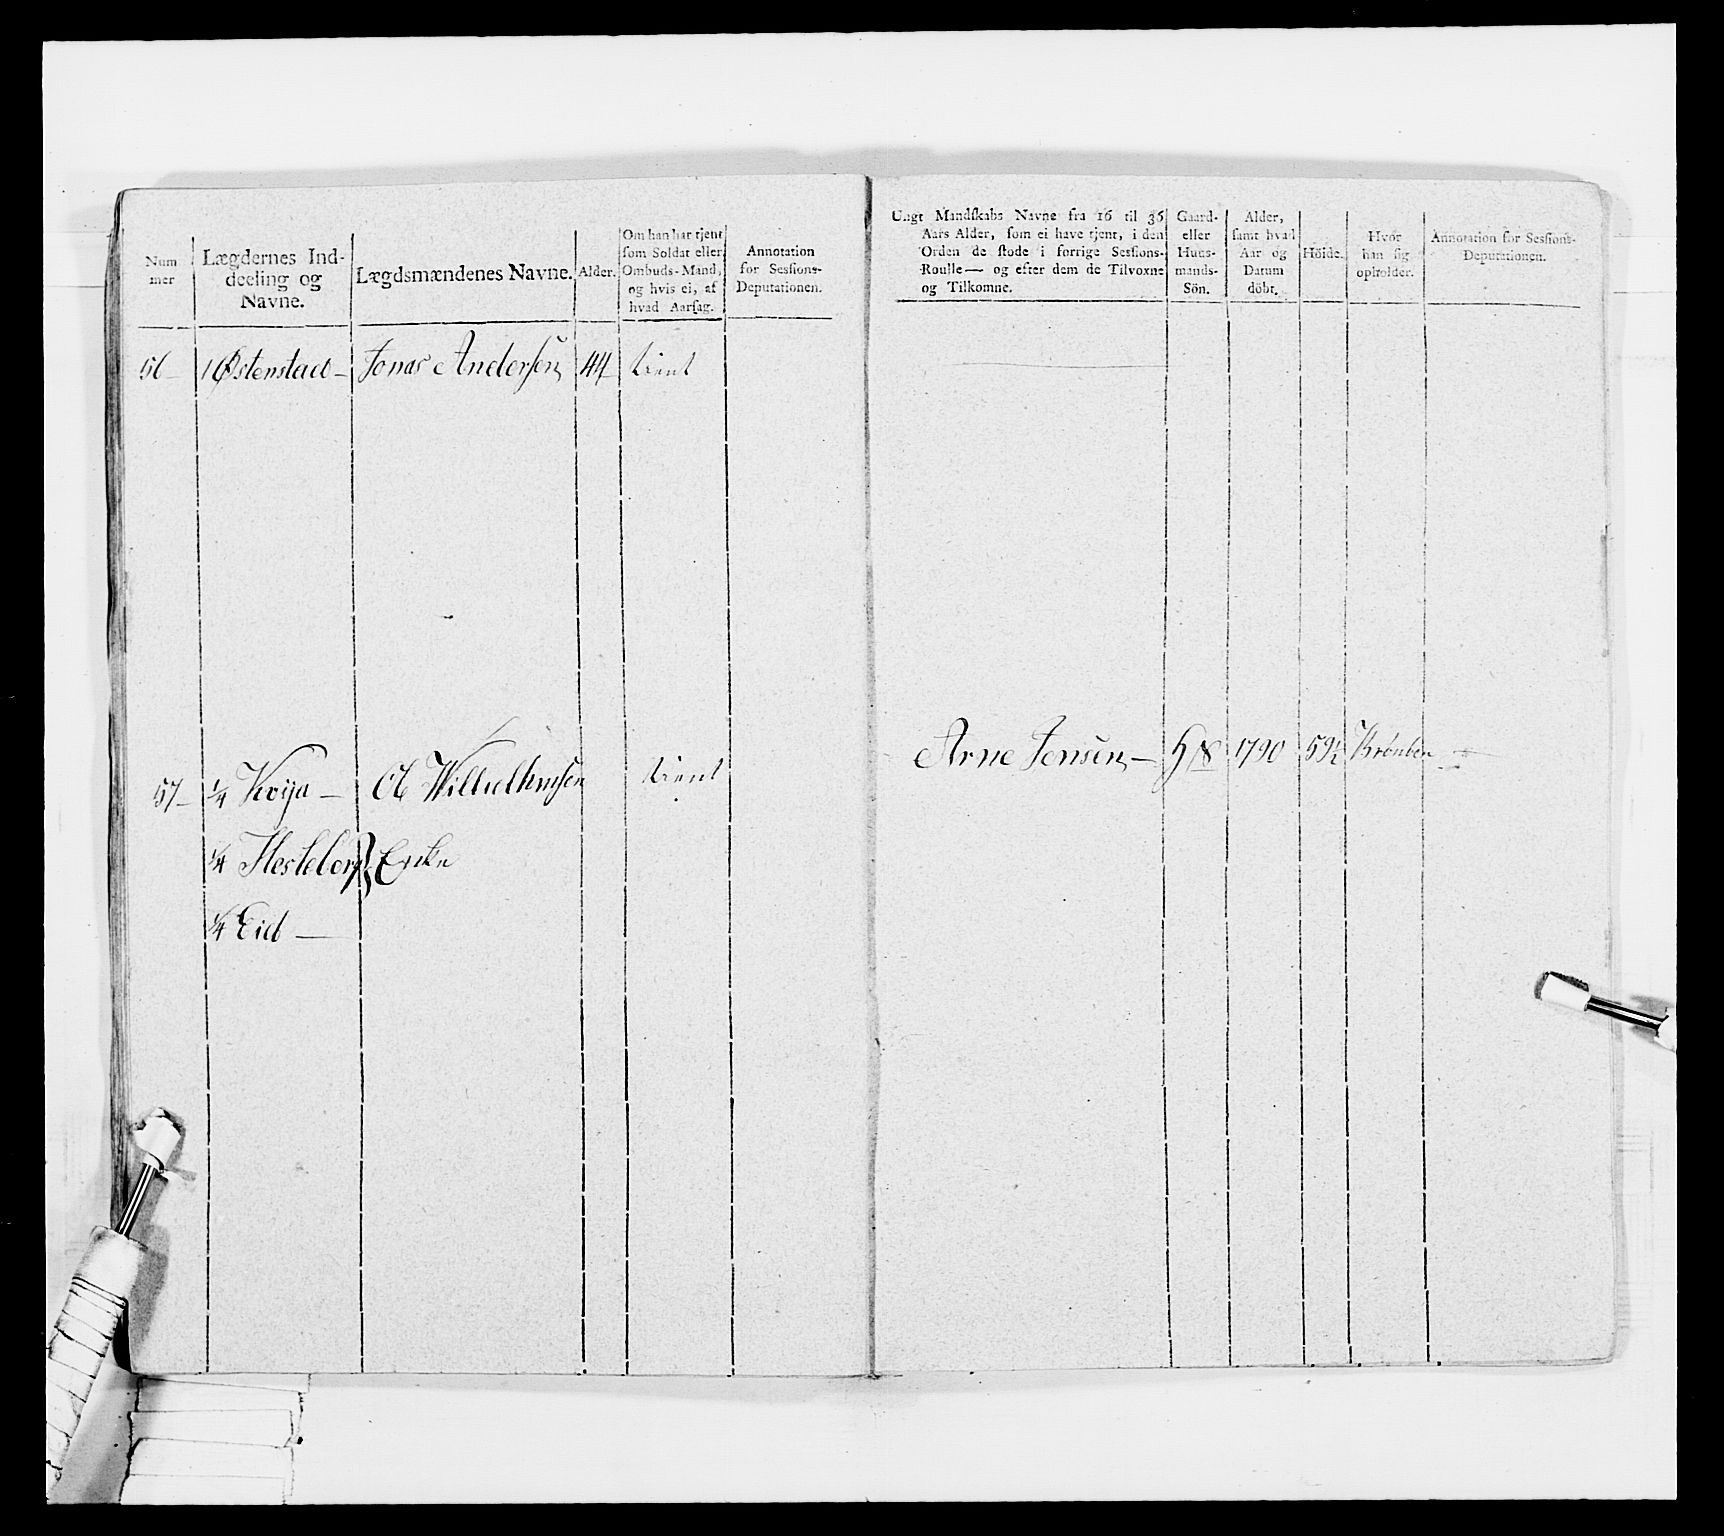 Num
mer
Lægdernes Ind-
deeling og
Navne.
Lægdsmændenes Navne.
Alder.
Om han har tjent
som Soldat eller
Ombuds-Mand,
og hvis ei, af
hvad Aarsag.
Annotation
for Sessions-
Deputationen.
Ungt Mandskabs Navne fra 16 til 36
Aars Alder, som ei have tjent, i den
Orden de stode i forrige Sessions-
Roulle — og efter dem de Tilvoxne
og Tilkomne.
Gaard-
eller
Huus-
mands-
Sön.
Alder,
samt hvad
Aar og
Datum
döbt.
Höide.
Hvor
han sig
opholder.
Annotation for Sessions-
Deputationen.
56 — Østenstad — Jonas Andersen 44 tient
Arne Jensen — G S 1790 59½
57 — ¼ Ole Wilhelmsen tient
¼ Hesteberg Enke
¼ Eid —